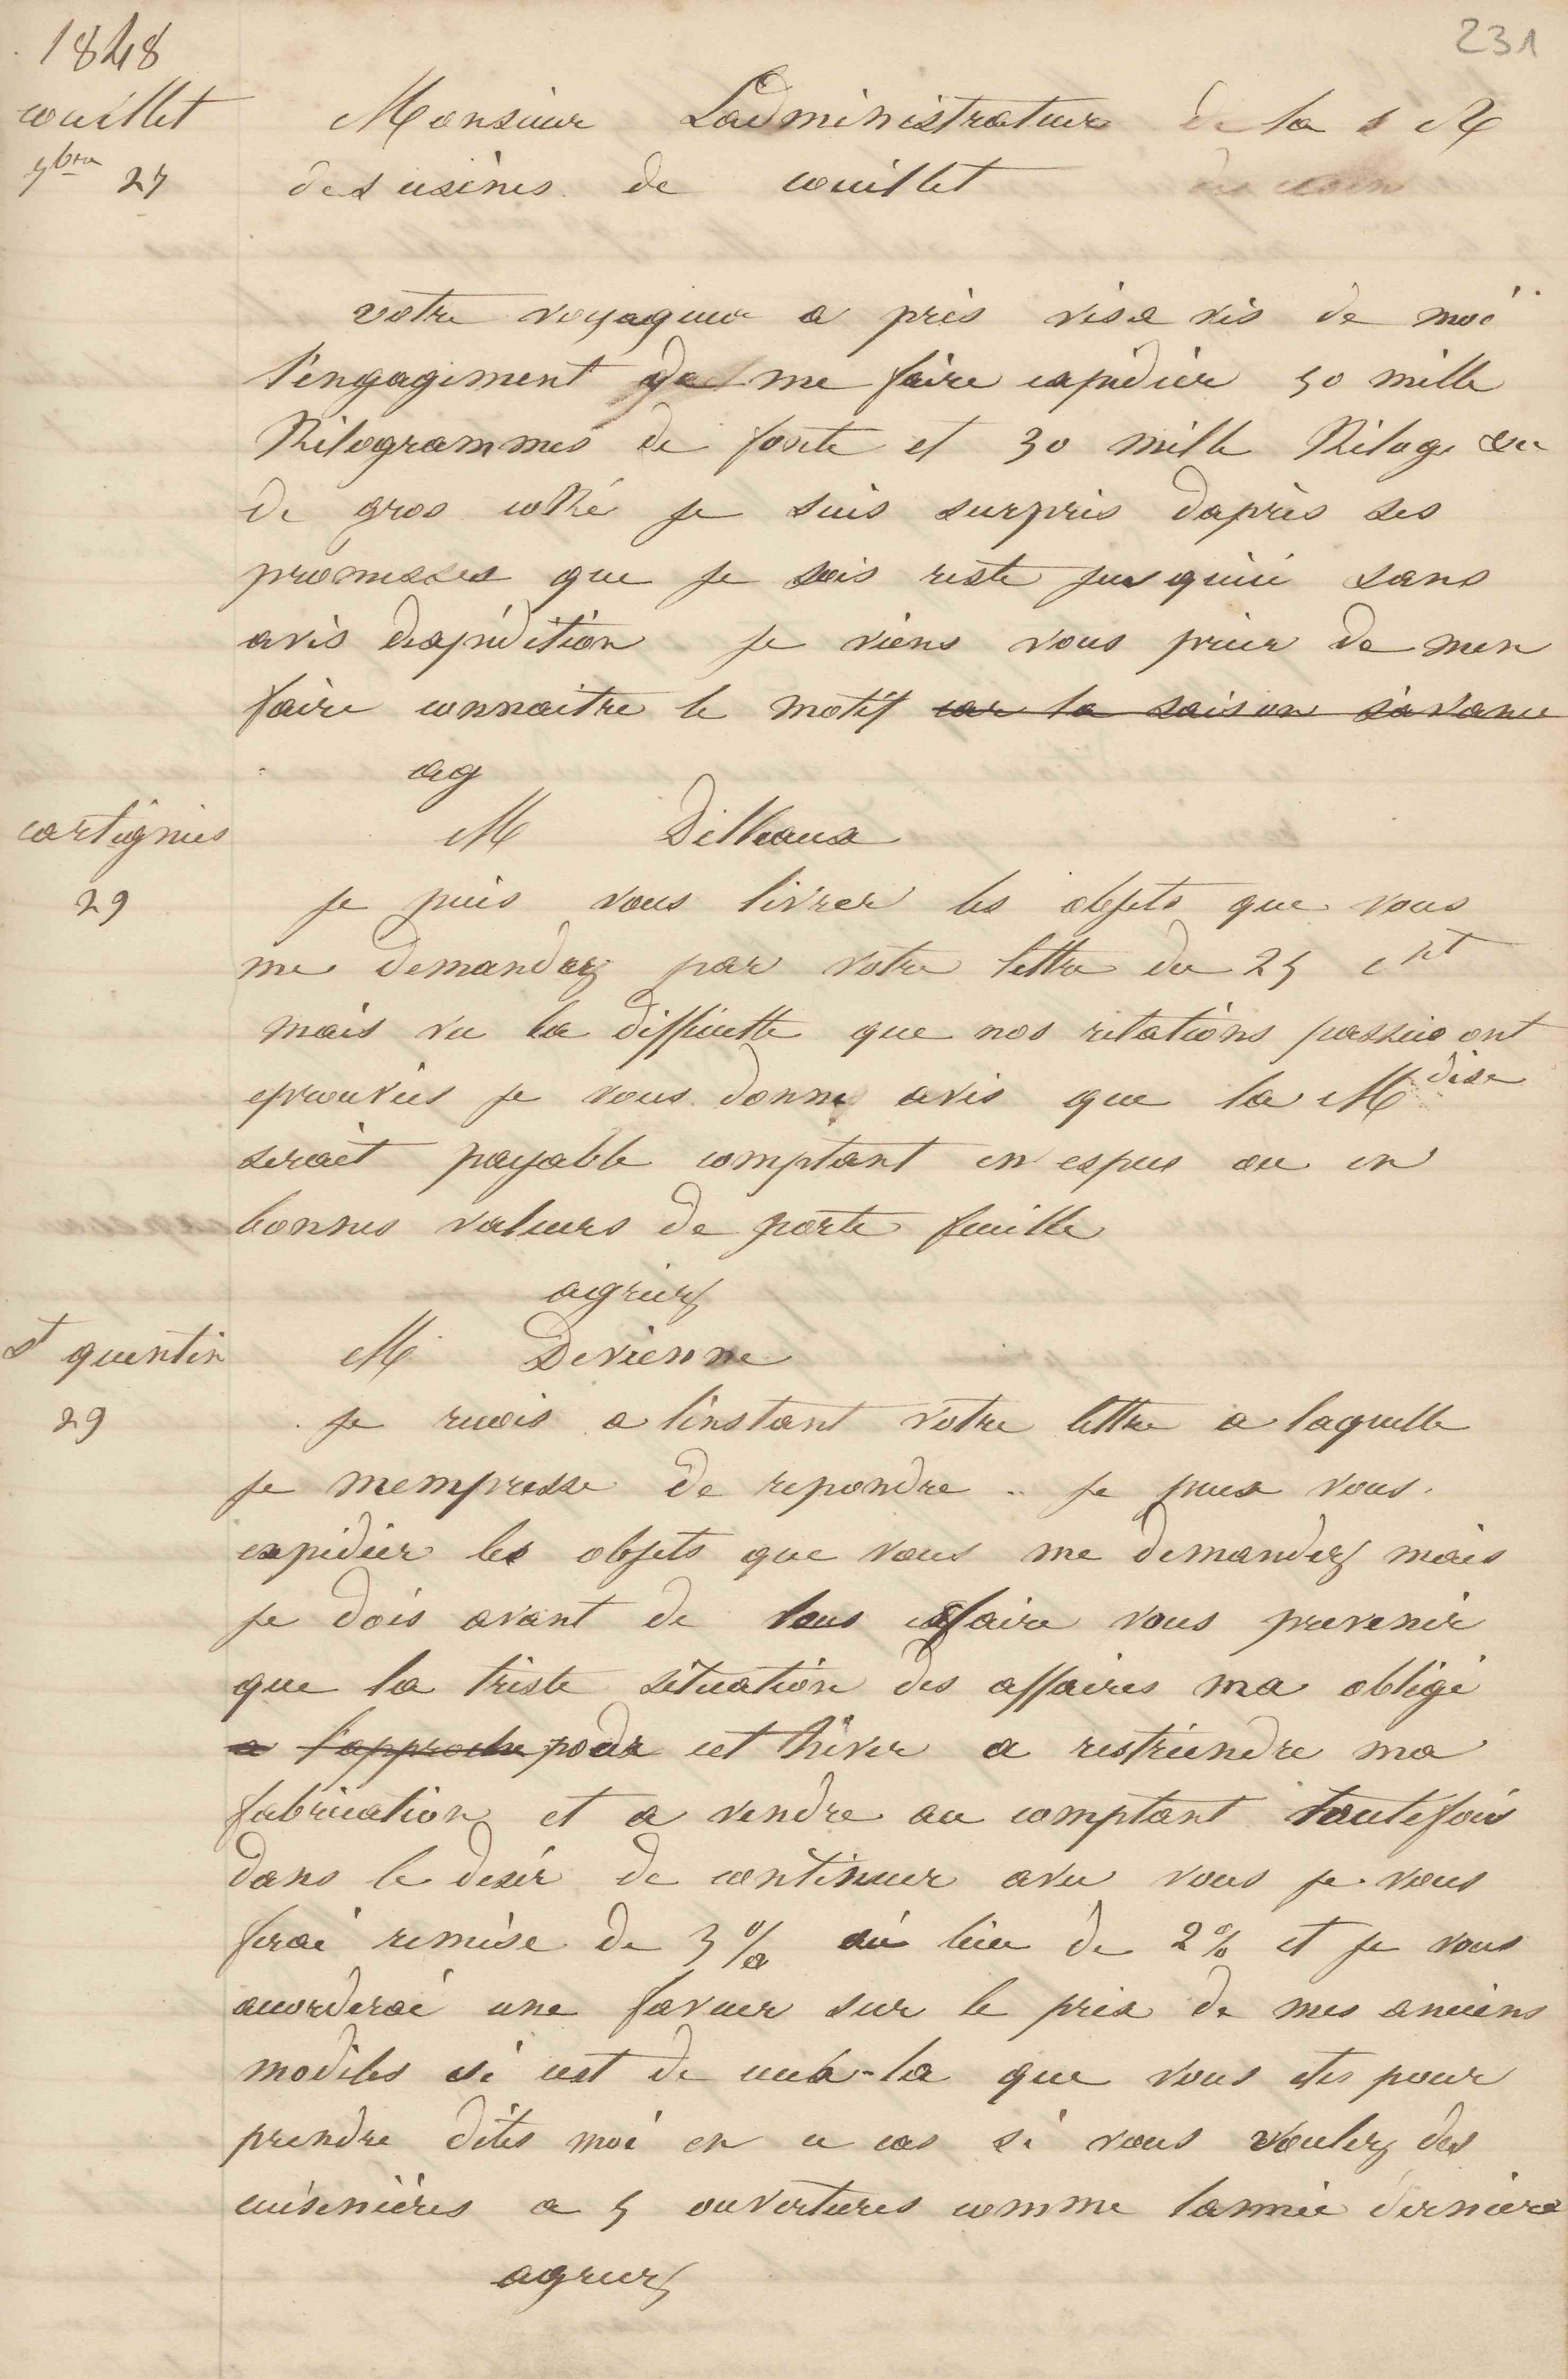 231
1848
couillet
7bre 27
Monsieur Ladministrateur de la s M
des usines de couillet
votre voyageur a pris visa vis de moi
l'engagement de me faire expedier 50 mille
Kilogrammes de fonte et 30 mille Kilog
de gros cokè je suis surpris daprès ses
promesses que je sois reste jusquici sans
avis dexpédition je viens vous prier de men
faire connaitre le motif car la saison savance
ag
cartignies
29
M Delleaux
je puis vous livrer les objets que vous
me demandez par votre lettre du 25 cnt
mais vu la difficulte que nos relations passées ont
eprouvées je vous donne avis que la Mdise
serait payable comptant en espces ou en
bonnes valeurs de porte feuille
agreez
st quentin
29
M Devienne
je recois a linstant votre lettre a laquelle
je mempresse de repondre .. je peux vous
expedier les objets que vous me demandez mais
je dois avant de faire vous prevenir
que la triste situation des affaires ma obligé
a l'approche pour cet hiver a restreindre ma
fabrication et a vendre au comptant toutefois
dans le desir de continuer avec vous je vous
ferai remise de 3 % au lieu de 2 % et je vous
accorderai une faveur sur le prix de mes anciens
modeles si cest de ceux-la que vous etes pour
prendre dites moi en ce cas si vous voulez des
cuisenières a 5 ouvertures comme lannée dernière
agreez